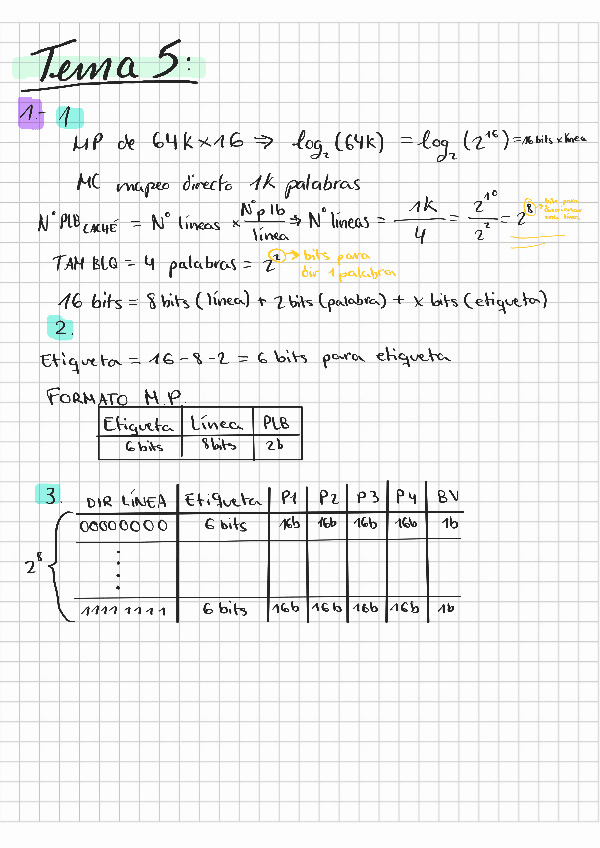 Tema 5:
1.- 1
MP de 64k x 16 ⇒ log₂ (64k) = log₂ (2¹⁶) = 16 bits x línea
MC mapeo directo 1k palabras
Nº PLB CACHÉ = Nº líneas x Nº plb / línea → Nº líneas = 1k / 4 = 2¹⁰ / 2² = 2⁸ → bits para
TAM BLQ = 4 palabras = 2² → bits para
dir 1 palabra
16 bits = 8 bits (línea) + 2 bits (palabra) + x bits (etiqueta)
2.
Etiqueta = 16 - 8 - 2 = 6 bits para etiqueta
FORMATO M.P.
Etiqueta Línea PLB
6 bits 8 bits 2b
3. DIR LÍNEA Etiqueta P1 P2 P3 P4 BV
00000000 6 bits 16b 16b 16b 16b 1b
2⁸
1111 1111 6 bits 16b 16b 16b 16b 1b